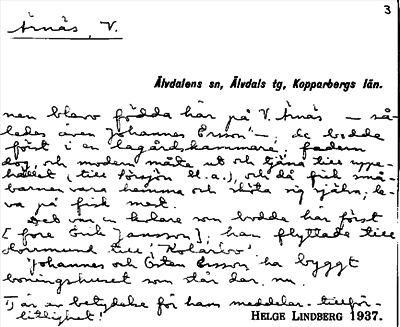 3
Årnäs, V.
Älvdalens sn, Älvdals tg, Kopparbergs län.
nen blevo födda här på V. Årnäs — så-
ledes även Johannes Ersson —; de bodde
först i en lagårdskammare; fadern
dog, och modern måste ut och tjäna till uppe-
hället (till försjön bl.a.), och då fick små-
barnen vara hemma och sköta sig själva; le-
va på fisk mest.
Det var en kolare som bodde här först
[före Erik Jansson]; han flyttade till
till "Kolarbo".
Johannes och Östen Ersson ha byggt
boningshuset som står där nu.
T är en betydelse för hans meddelar-tillför-
litlighet!
HELGE LINDBERG 1937.